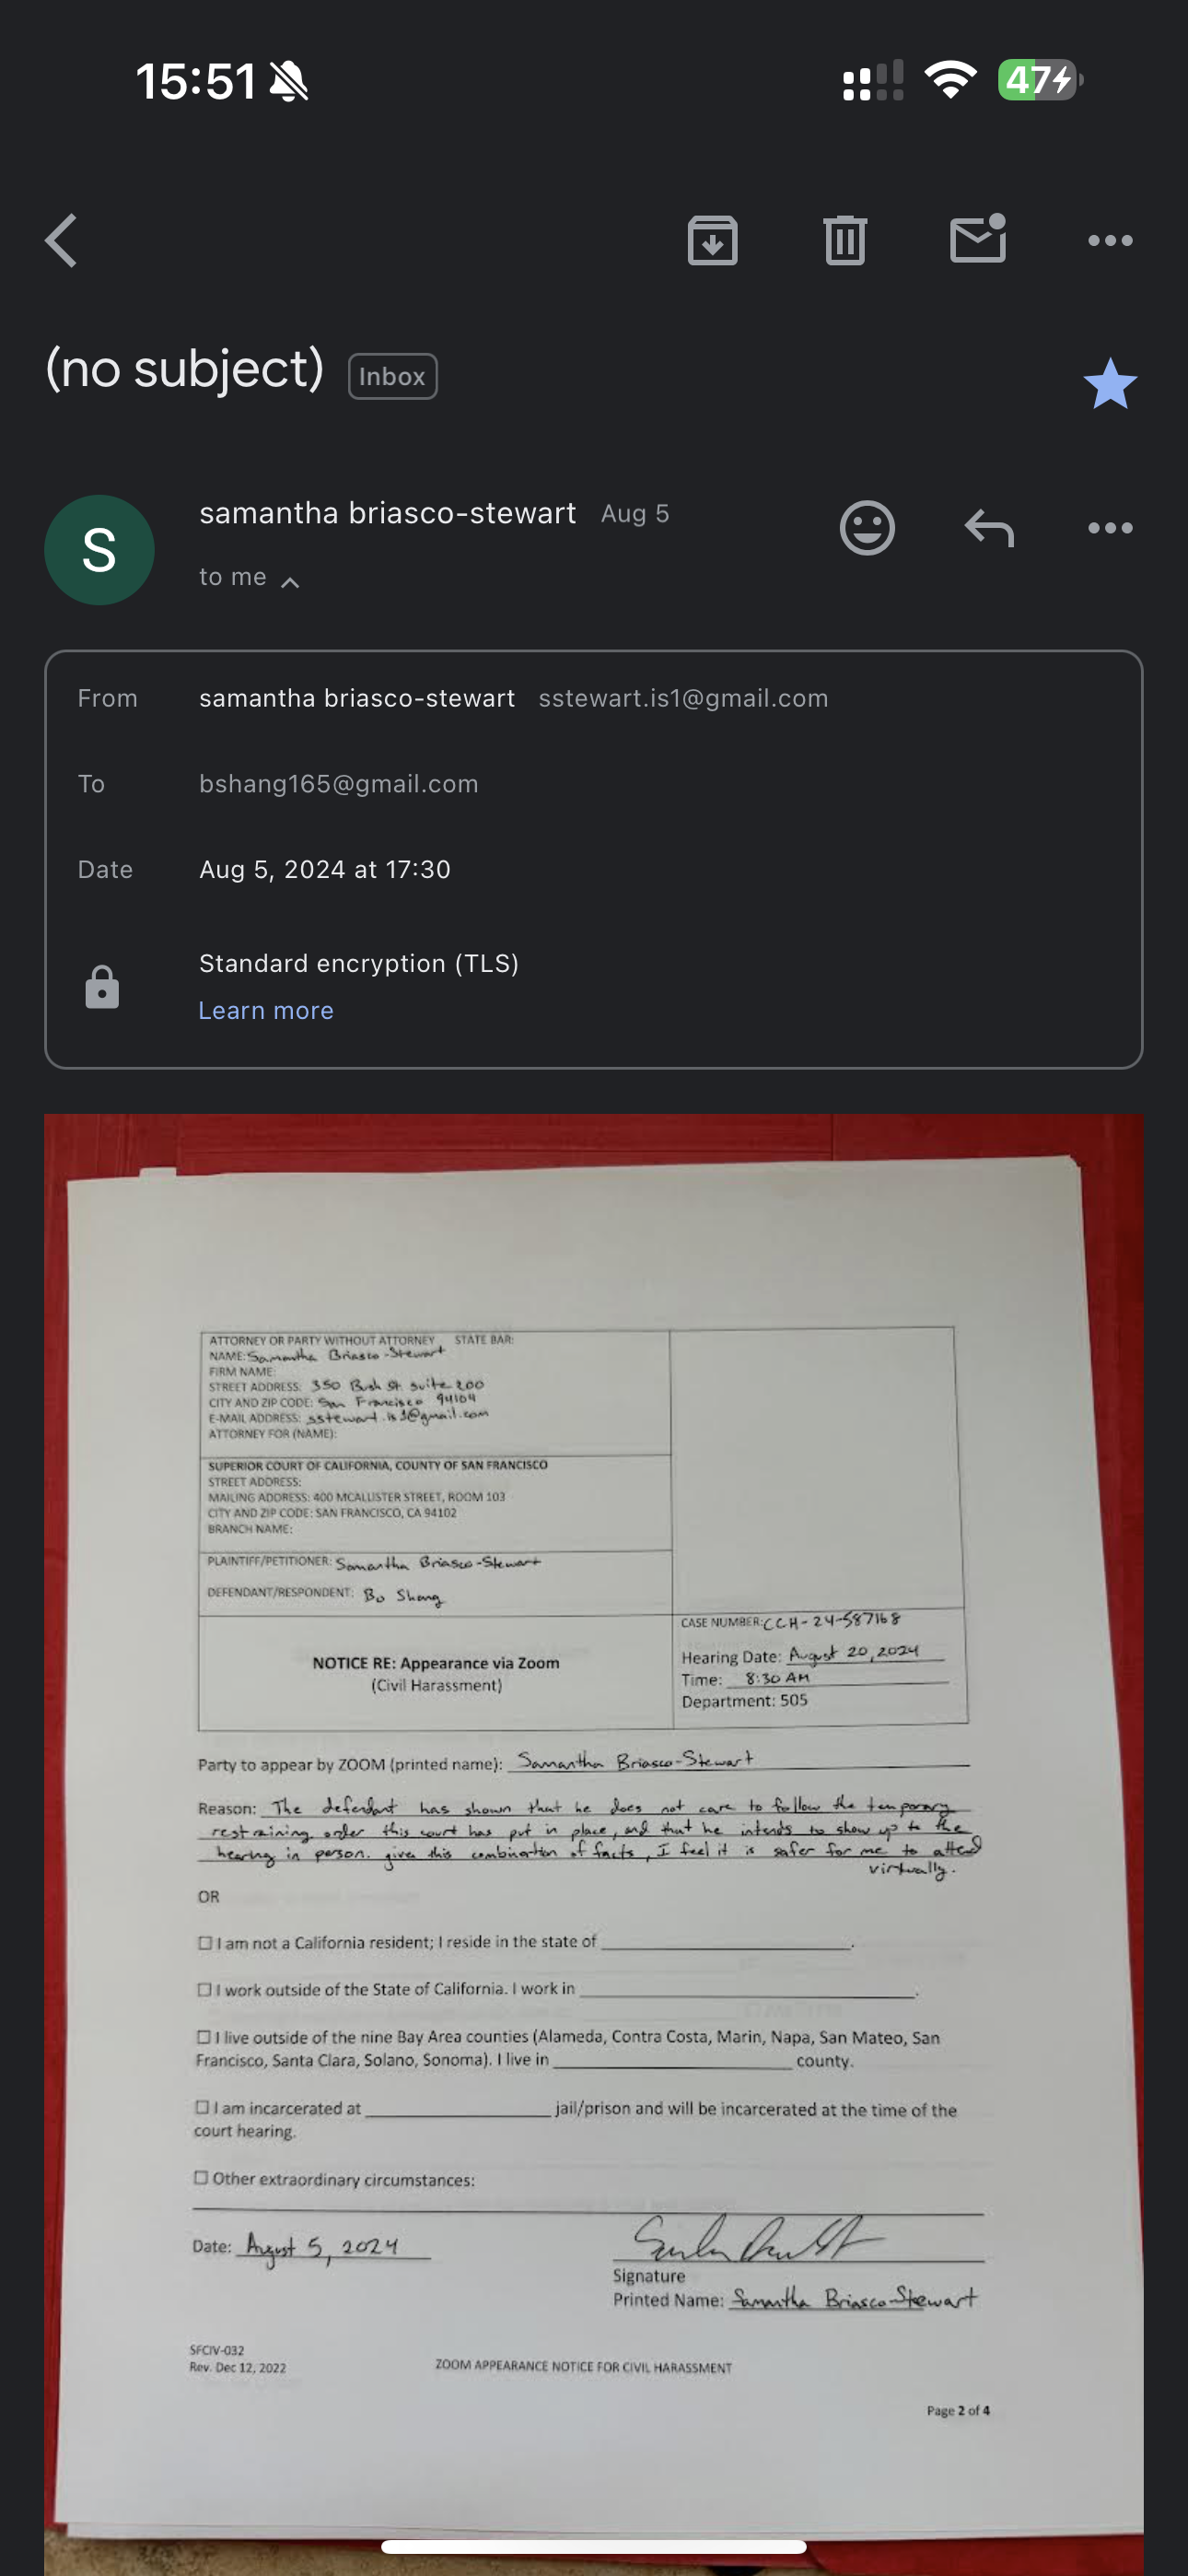 15:51
47
(no subject) Inbox
S
samantha briasco-stewart Aug 5
to me
From samantha briasco-stewart sstewart.is1@gmail.com
To bshang165@gmail.com
Date Aug 5, 2024 at 17:30
Standard encryption (TLS)
Learn more
ATTORNEY OR PARTY WITHOUT ATTORNEY STATE BAR:
NAME: Samantha Briasco-Stewart
FIRM NAME:
STREET ADDRESS: 350 Bush St. suite 200
CITY AND ZIP CODE: San Francisco 94104
E-MAIL ADDRESS: sstewart.is1@gmail.com
ATTORNEY FOR (NAME):
SUPERIOR COURT OF CALIFORNIA, COUNTY OF SAN FRANCISCO
STREET ADDRESS:
MAILING ADDRESS: 400 MCALLISTER STREET, ROOM 103
CITY AND ZIP CODE: SAN FRANCISCO, CA 94102
BRANCH NAME:
PLAINTIFF/PETITIONER: Samantha Briasco-Stewart
DEFENDANT/RESPONDENT: Bo Shang
NOTICE RE: Appearance via Zoom
(Civil Harassment)
CASE NUMBER: CCH-24-587168
Hearing Date: August 20, 2024
Time: 8:30 AM
Department: 505
Party to appear by ZOOM (printed name): Samantha Briasco-Stewart
Reason: The defendant has shown that he does not care to follow the temporary
restraining order this court has put in place, and that he intends to show up to the
hearing in person. given this combination of facts, I feel it is safer for me to attend
virtually.
OR
☐ I am not a California resident; I reside in the state of ____.
☐ I work outside of the State of California. I work in ____.
☐ I live outside of the nine Bay Area counties (Alameda, Contra Costa, Marin, Napa, San Mateo, San
Francisco, Santa Clara, Solano, Sonoma). I live in ____ county.
☐ I am incarcerated at ____ jail/prison and will be incarcerated at the time of the
court hearing.
☐ Other extraordinary circumstances:
Date: August 5, 2024
Signature
Printed Name: Samantha Briasco-Stewart
SFCIV-032
Rev. Dec 12, 2022
ZOOM APPEARANCE NOTICE FOR CIVIL HARASSMENT
Page 2 of 4